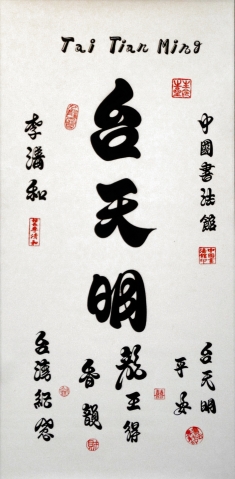 Tai Tian Ming
台天明
中國書法館
李濤和
台天明
平安
龍王得
魯韻
台灣紀念